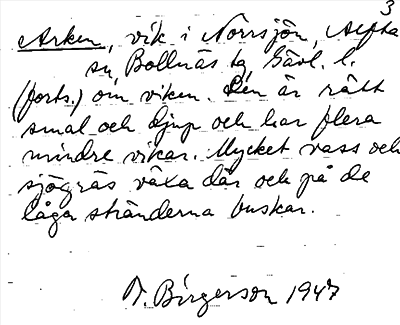 3
Arken, vik i Norrsjön, Alfta
sn, Bollnäs tg, Gävl. l.
(forts.) om viken. Den är rätt
smal och djup och har flera
mindre vikar. Mycket vass och
sjögräs växa där och på de
låga stränderna buskar.
T. Birgerson 1947